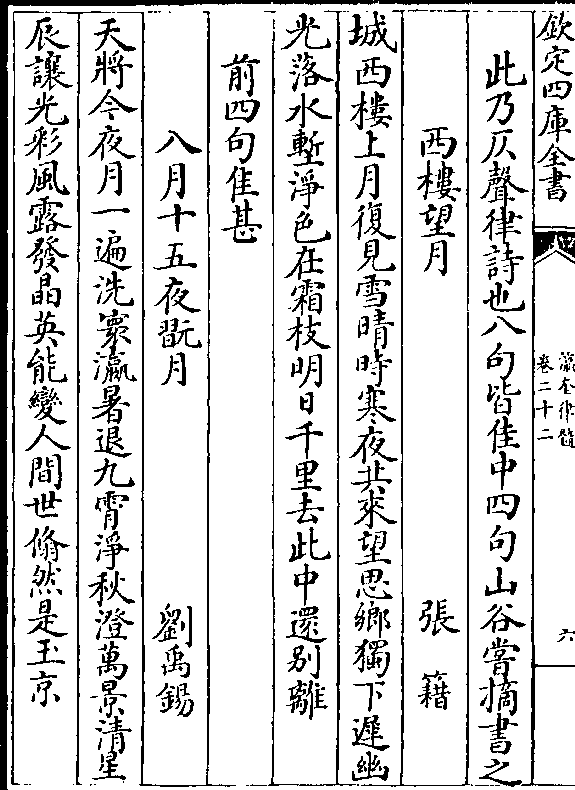 欽定四庫全書
瀛奎律髓
卷二十二
六
此乃仄聲律詩也八句皆佳中四句山谷嘗摘書之
西樓望月　張籍
城西樓上月復見雪晴時寒夜共來望思鄉獨下遲幽
光落水塹淨色在霜枝明日千里去此中還别離
前四句佳甚
八月十五夜翫月　劉禹錫
天將今夜月一遍洗寰瀛暑退九霄淨秋澄萬景清星
辰讓光彩風露發晶英能變人間世翛然是玉京